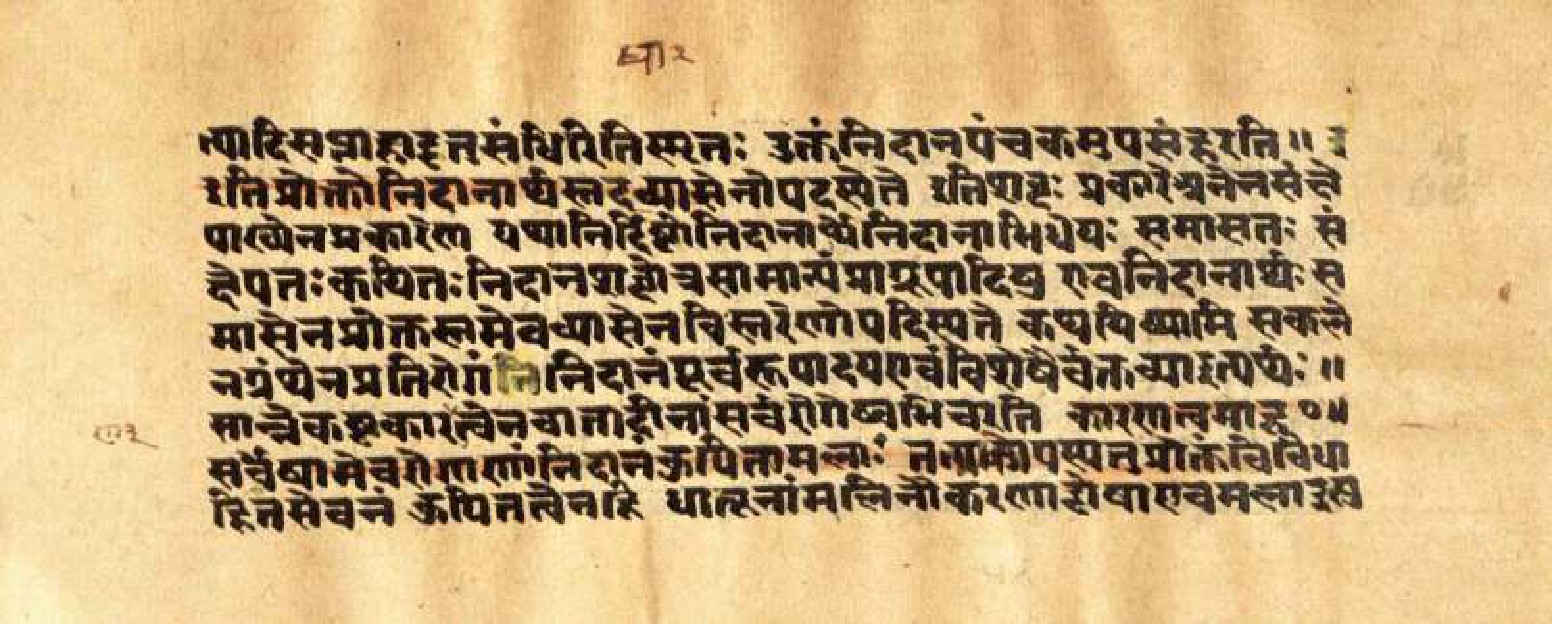 त्यादिसप्राहाइतसंधिरितिस्मृतः उक्तंनिदानपंचकमुपसंहरति॥ इ
इतिप्रोक्तोनिदानार्थस्तद्व्यासेनोपदेक्ष्यते इतिशब्दः प्रकारेअनेनसंक्षे
पाख्येनप्रकारेण यथानिर्दिष्टोनिदानार्थोनिदानाभिधेयः समासतः सं
क्षेपतःकथितःनिदानशब्दोत्रसामान्यंप्राग्रूपादिषु एवनिदानार्थः स
मासेनप्रोक्तस्तमेवव्यासेनविस्तरेणोपदिश्यते कथयिष्यामि सकले
नग्रंथेनप्रतिरोगंनिदानंपूर्वरूपाद्यएवंविशेषैर्वक्तव्याइत्यर्थः॥
सान्नैकष्टकारत्वेनवातादीनांसर्वरोगेष्वभिचरति कारणत्वमाह ०॥
सर्वेषामेवरोगाणांनिदानंकुपितामलाः तत्प्रकोपस्यतुप्रोक्तंविविधा
हितसेवनं कुपितत्वेनहि धातूनांमलिनीकरणाद्दोषाएवमलाउच्य